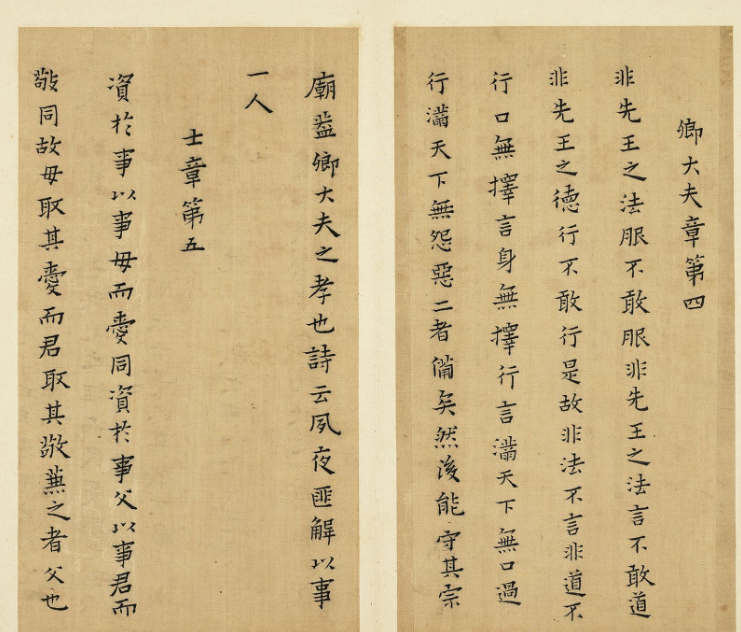 卿大夫章第四
非先王之法服不敢服非先王之法言不敢道
非先王之德行不敢行是故非法不言非道不
行口無擇言身無擇行言滿天下無口過
行滿天下無怨惡三者備矣然後能守其宗
廟蓋卿大夫之孝也詩云夙夜匪解以事
一人
士章第五
資於事以事母而愛同資於事父以事君而
敬同故母取其愛而君取其敬兼之者父也